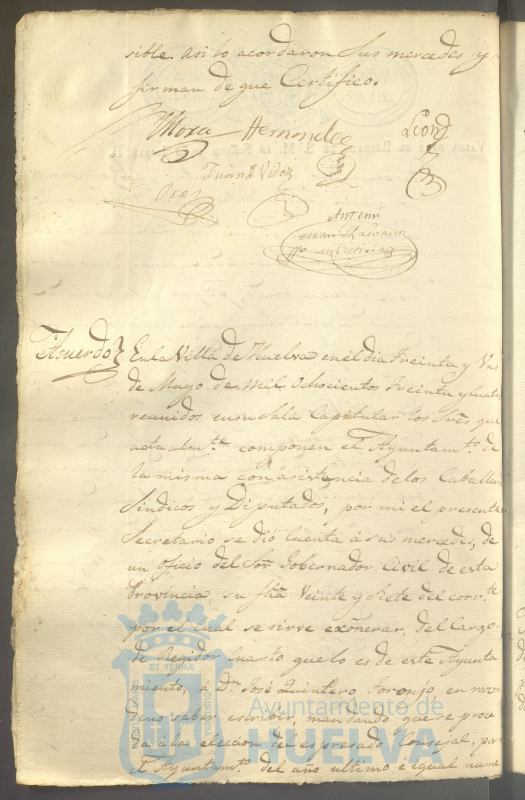 sible. asi lo acordaron sus mercedes y
firman de que Certifico.
Mora Hernandez León
Juan J. Vides
Antemi
Acuerdo} En la Villa de Huelva en el dia treinta y Uno
de Mayo de mil Ochocientos treinta y cuatro
reunidos en su Sala Capitular los Sres que
actualmte componen el Ayuntamto de
la misma con asistencia de los Caballeros
Sindicos y Diputados, por mi el presente
Secretario se dió cuenta á sus mercedes, de
un Oficio del Sor Gobernador Civil de esta
Provincia, su fha Veinte y siete del corrte
por el cual se sirve exônerar, del Cargo
de Regidor Cuarto que lo es de este Ayunta
miento, á Dn José Quintero Toronjo, en razon
de no saber escribir, mandando que se proce
da á la eleccion del espresado Consejal, por
el Ayuntamto del año ultimo é igual nume
ET TERRÆ
Ayuntamiento de
HUELVA